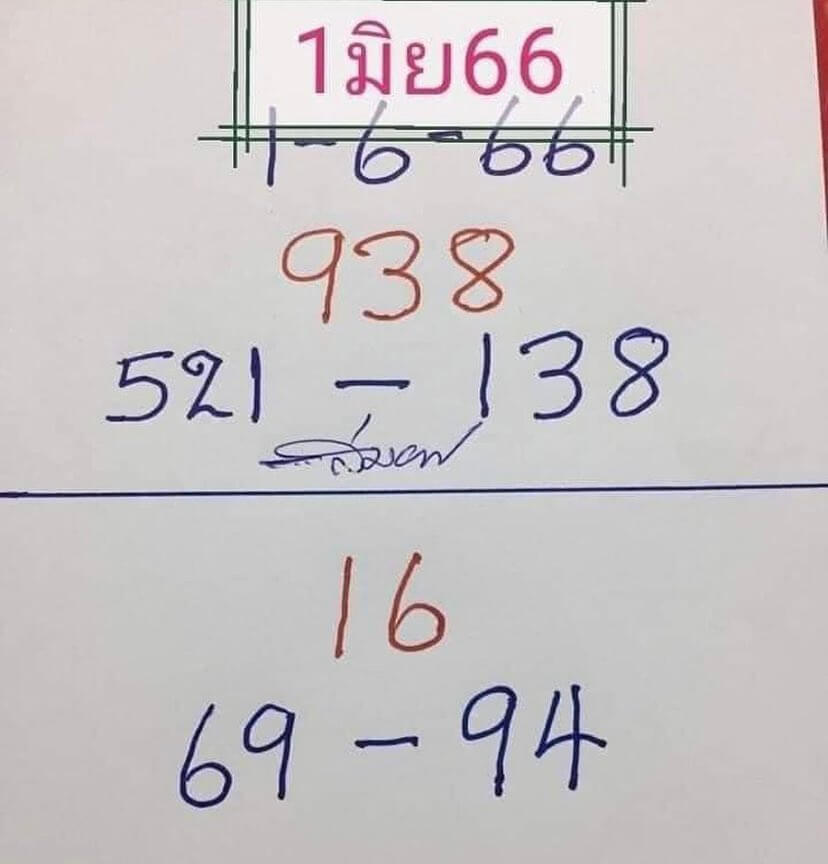 1มิย66
1-6-66
938
521 - 138
16
69 - 94